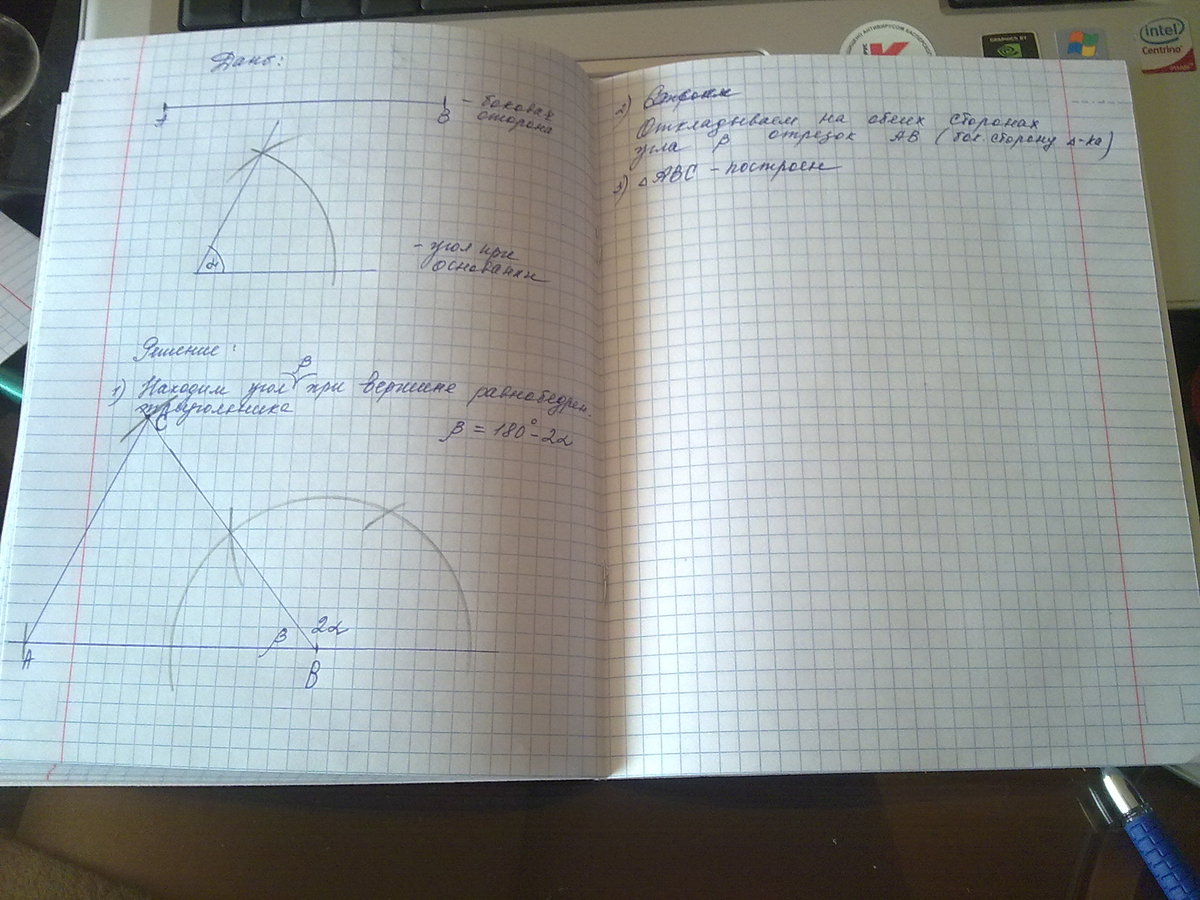 Дано:
A B - боковая
сторона
α - угол при
основании
Решение:
β
1) Находим угол при вершине равнобедрен.
треугольника
C
β = 180° - 2α
β 2α
A B
2)
Откладываем на обеих сторонах
угла β отрезок AB (бок. сторону Δ-ка)
3) Δ ABC - построен
GRAPHICS BY
NVIDIA
intel
Centrino